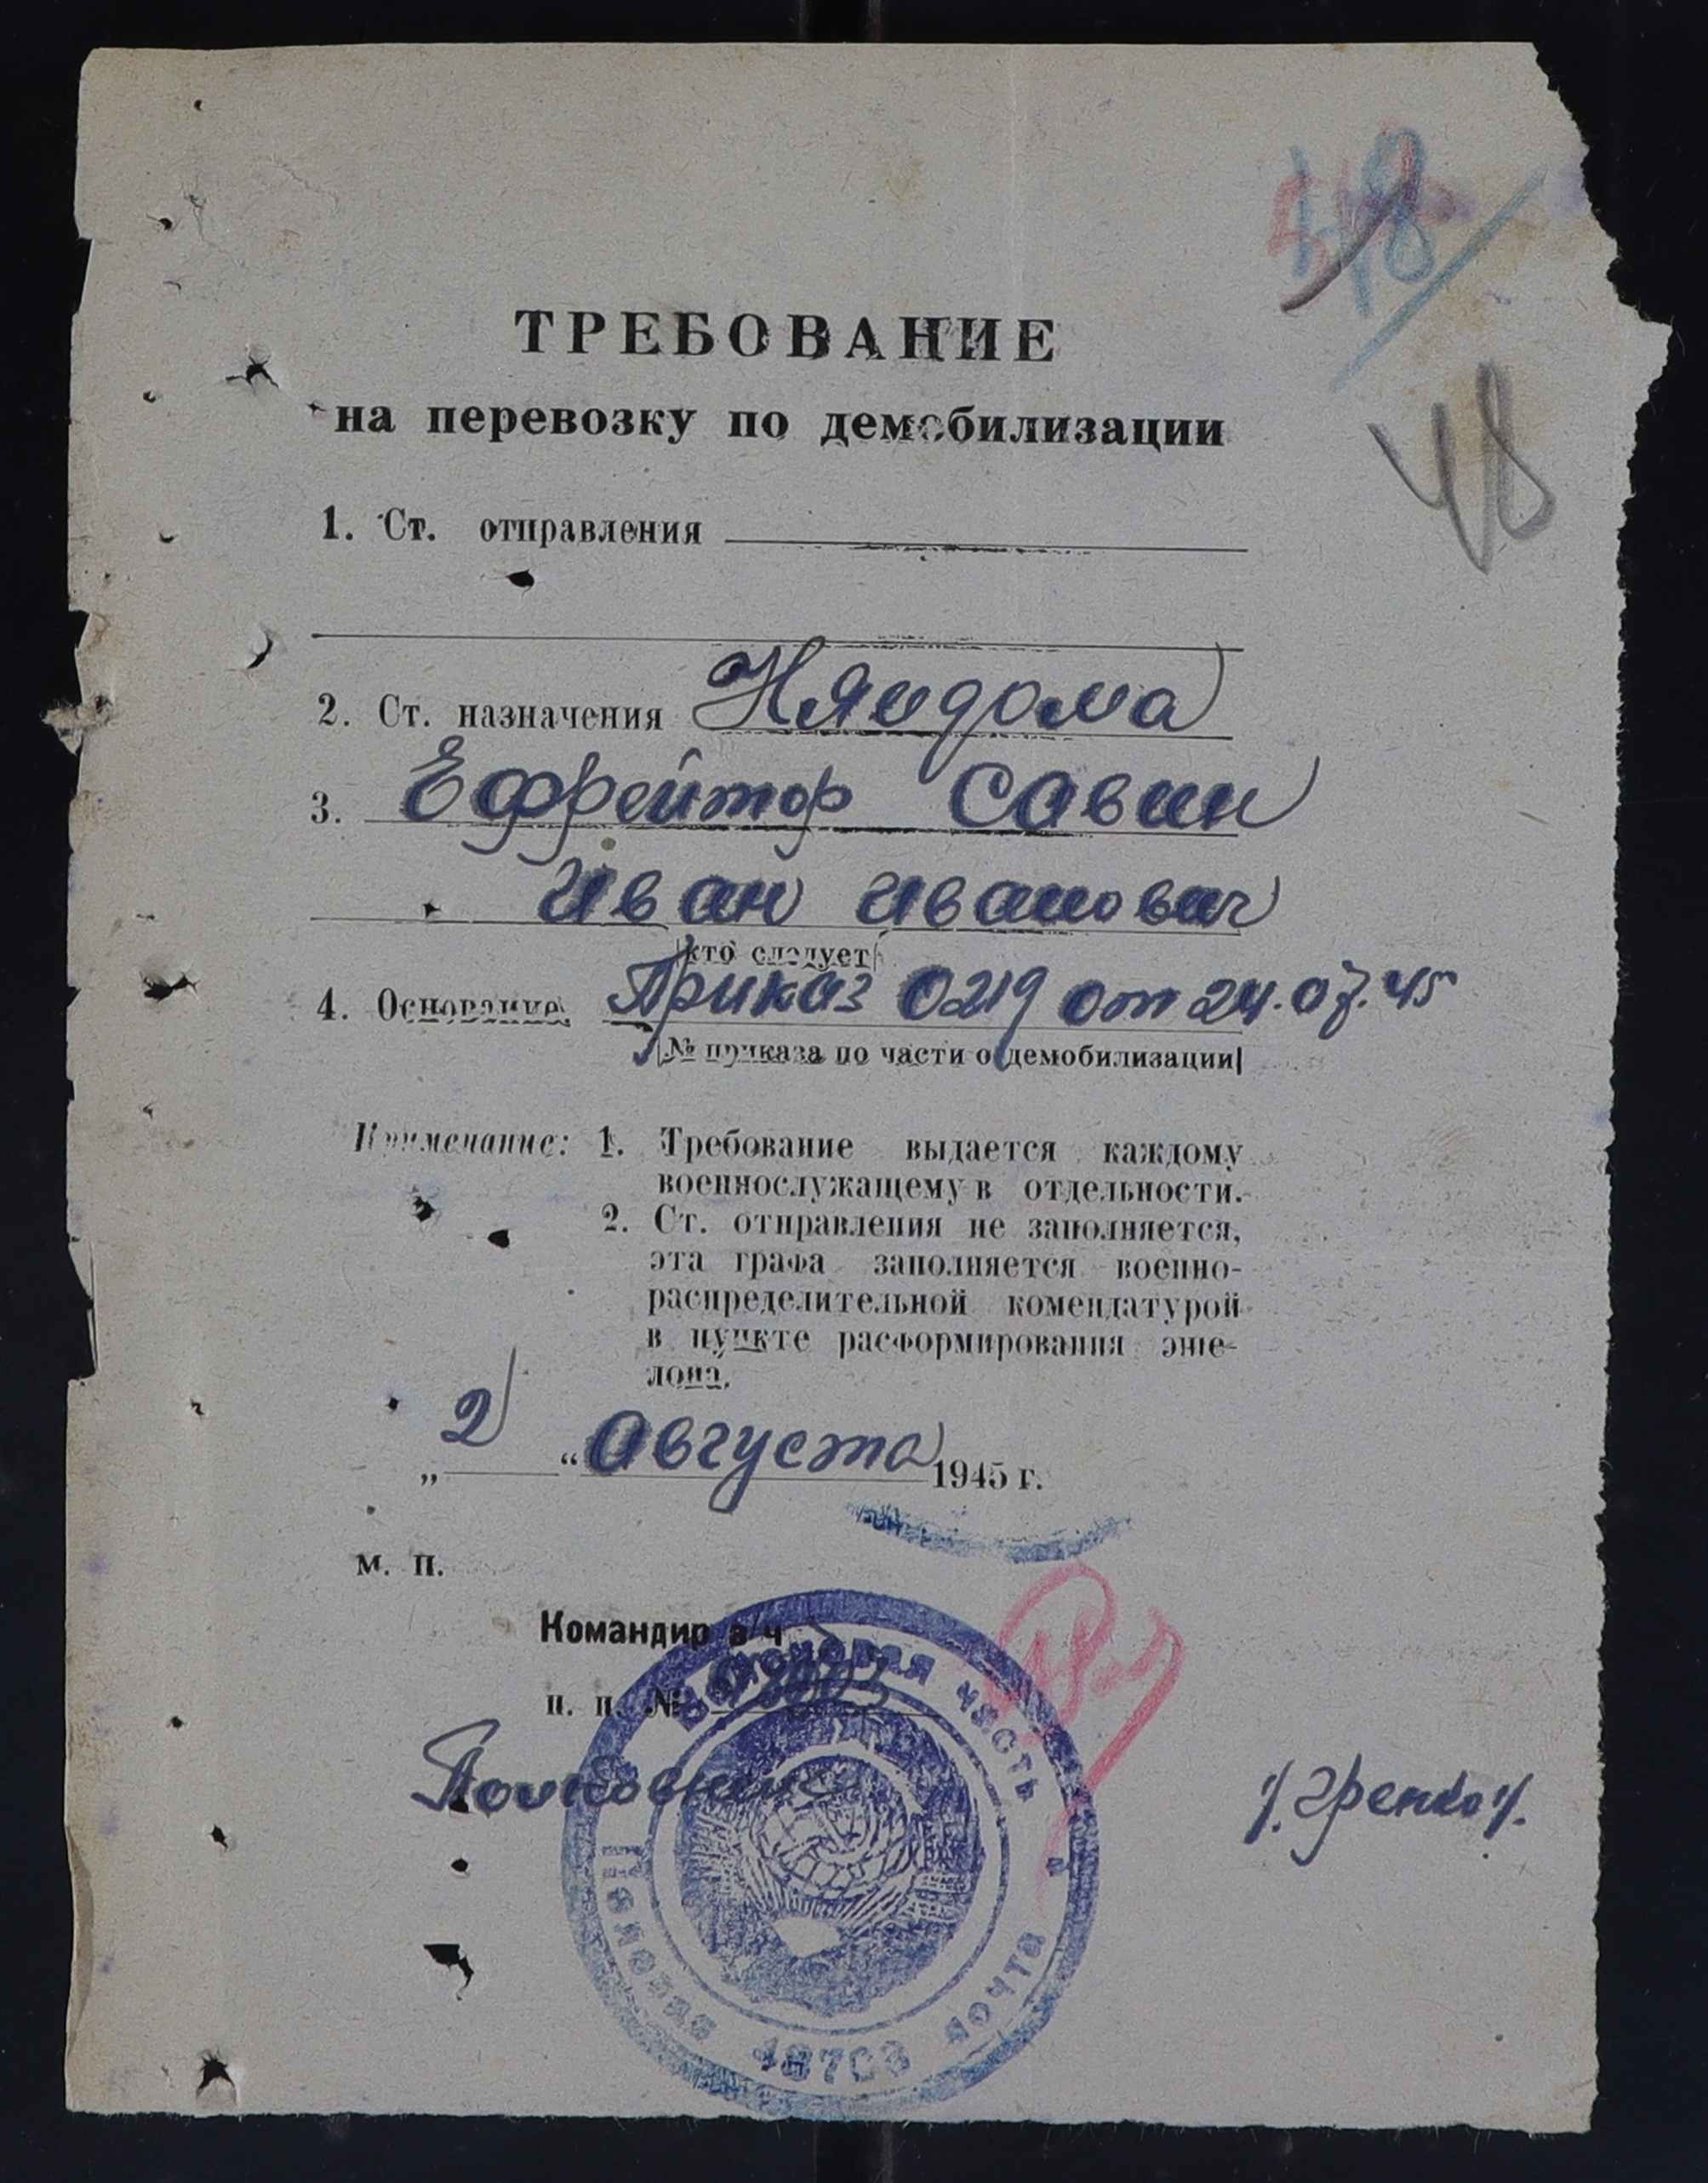 48
ТРЕБОВАНИЕ
на перевозку по демобилизации
1. Ст. отправления
2. Ст. назначения Няндома
3. Ефрейтор Савин
Иван Иванович
(кто следует)
4. Основание Приказ 0219 от 24.07.45
(№ приказа по части о демобилизации)
Примечание: 1. Требование выдается каждому
военнослужащему в отдельности.
2. Ст. отправления не заполняется,
эта графа заполняется военно-
распределительной комендатурой
в пункте расформирования эше-
лона.
„2“ Августа 1945 г.
м. п.
Командир в/ч
п. п. №
Полковник
Войсковая часть
Полевая почта